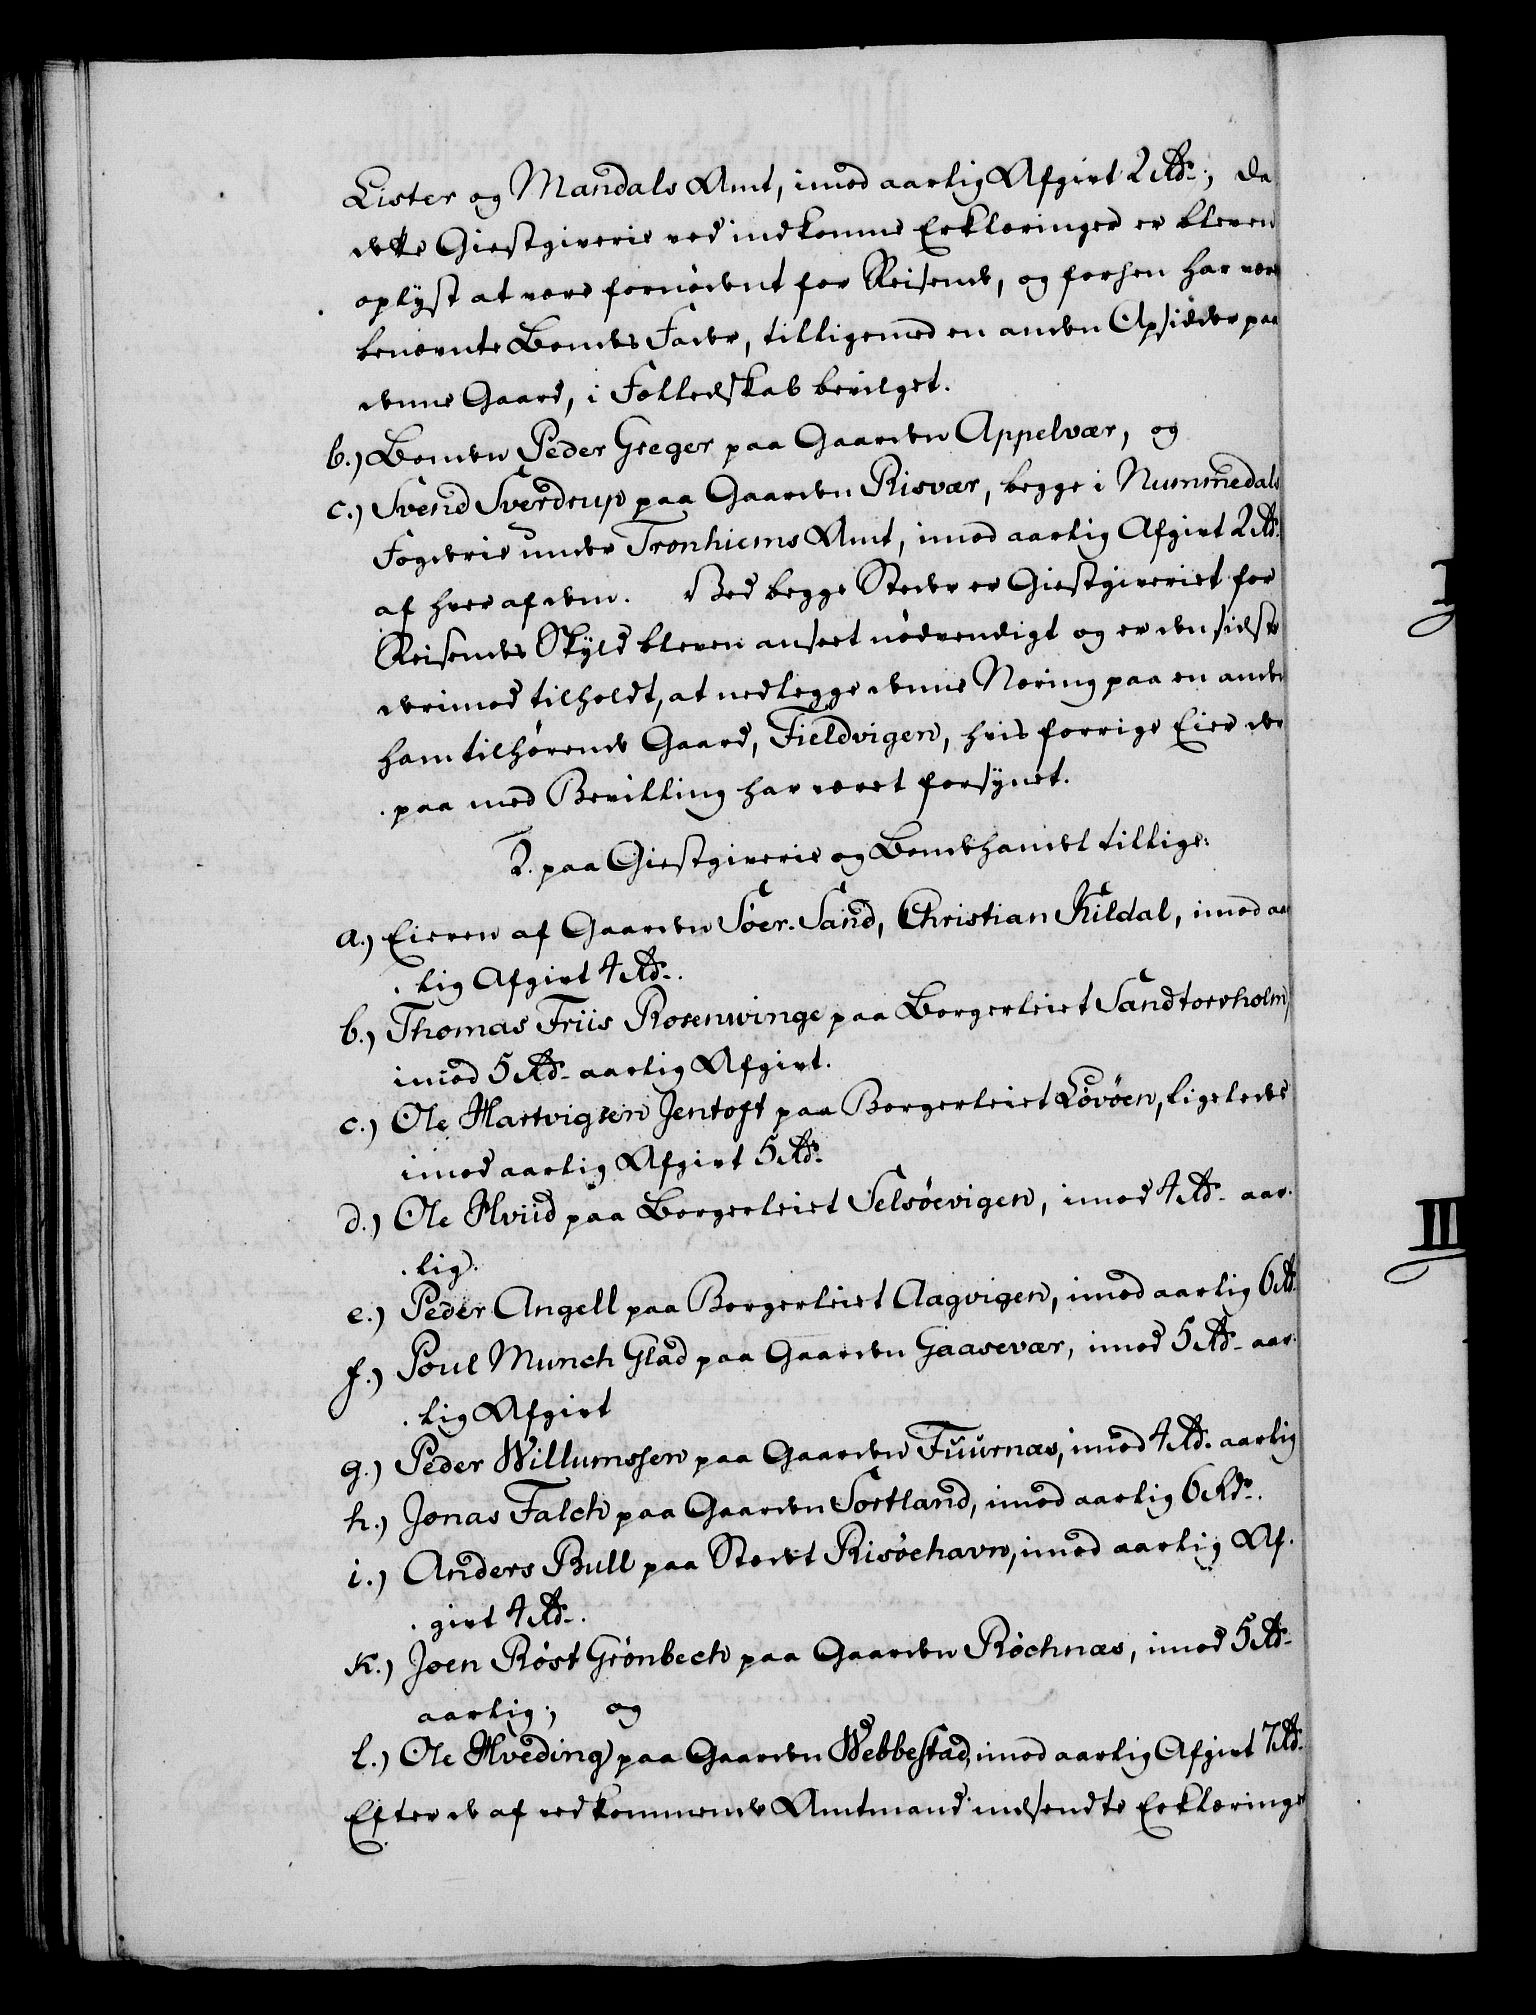 Lister og Mandals Amt, imod aarlig Afgivt 2 Rdr.; da
dette Giestgiverie ved indkomne Erklæringer er bleven
oplyst at være fornødent for Reisende, og forhen har være
benævnte Bondes Fader, tilligemed en anden Opsidder paa
denne Gaard, i Fælledskab bevilget.
b.) Bonden Peder Greger paa Gaarden Appelvær, og
c.) Svend Sverdrup paa Gaarden Risvær, begge i Nummedals
Fogderie under Tronhiems Amt, imod aarlig Afgivt 2 Rdr.
af hver af dem. Ved begge Steder er Giestgiveriet for
Reisendes Skyld bleven anseet nødvendigt og er den sidste
derimod tilholdt, at nedlegge denne Næring paa en anden
ham tilhørende Gaard, Fieldvigen, hvis forrige Eier der
paa med Bevilling har været forsynet.
2. paa Giestgiverie og Bondehandel tillige:
a.) Eieren af Gaarden Søer-Sand, Christian Kildal, imod aar
lig Afgivt 4 Rdr.
b.) Thomas Friis Rosenvinge paa Borgerleiet Sandtorvholm,
imod 5 Rdr. aarlig Afgivt.
c.) Ole Hartvigsen Jentoft paa Borgerleiet Løvøen, ligeledes
imod aarlig Afgivt 5 Rdr.
d.) Ole Hviid paa Borgerleiet Selsøevigen, imod 4 Rdr. aar-
lig.
e.) Peder Angell paa Borgerleiet Aagvigen, imod aarlig 6 Rd.
f.) Poul Munch Glad paa Gaarden Gaasevær, imod 5 Rdr. aar-
lig Afgivt
g.) Peder Willumssen paa Gaarden Fuurnæs, imod 4 Rd. aarlig
h.) Jonas Falch paa Gaarden Sortland, imod aarlig 6 Rdr.
i.) Anders Bull paa Stedet Risøehavn, imod aarlig Af-
givt 4 Rdr.
k.) Joen Røst Grønbech paa Gaarden Røchnæs, imod 5 Rdr.
aarlig; og
l.) Ole Hveding paa Gaarden Webbestad, imod aarlig Afgivt 7 Rd.
Efter de af vedkommende Amtmand indsendte Erklæringer
I
III